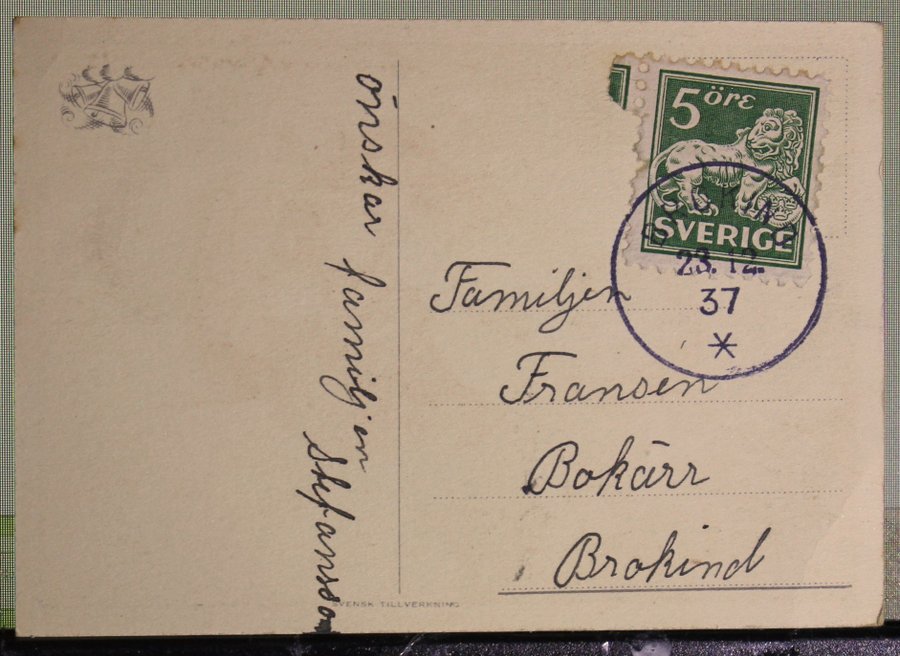 önskar familjen
Stefansson
5 öre
SVERIGE
BROKIND
23.12.
37
Familjen
Fransen
Bokärr
Brokind
SVENSK TILLVERKNING